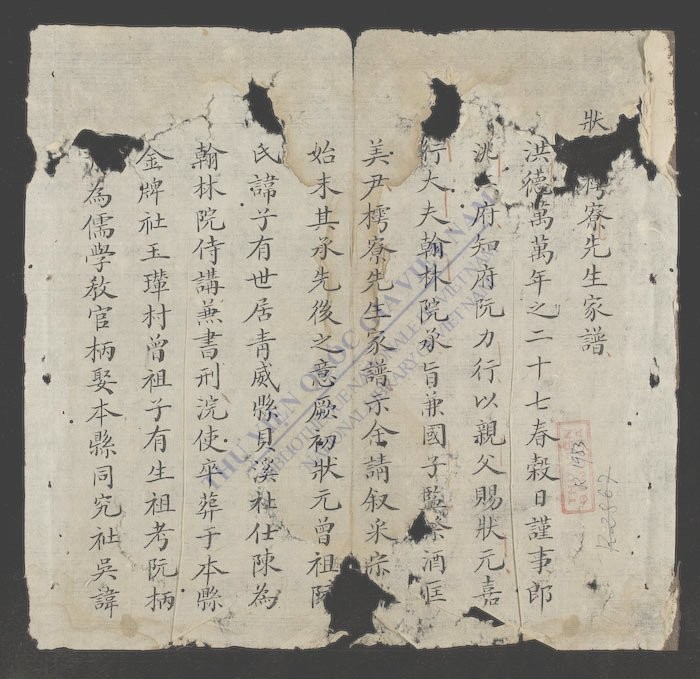 狀 樗寮先生家譜
洪德萬萬年之二十七春穀日謹事郎
洮 府知府阮力行以親父賜狀元嘉
行大夫翰林院承旨兼國子監祭酒匡
美尹樗寮先生家譜示余請叙釆宗
始末其承先後之意厥初狀元曾祖
氏諱子有世居青威縣貝溪社仕陳為
翰林院侍講兼書刑浣使卒葬于本縣
金牌社玉瓘村曾祖子有生祖考阮柄
為儒學敎官柄娶本縣同究社吳諱
THƯ VIỆN QUỐC GIA VIỆT NAM
BIBLIOTHEQUE NATIONALE DU VIETNAM
NATIONAL LIBRARY OF VIETNAM
R.1953